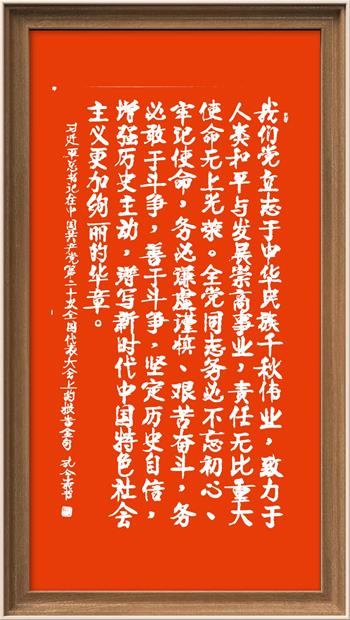 我们党立志于中华民族千秋伟业，致力于
人类和平与发展崇高事业，责任无比重大
使命无上光荣。全党同志务必不忘初心、
牢记使命，务必谦虚谨慎、艰苦奋斗，务
必敢于斗争，善于斗争，坚定历史自信，
增强历史主动，谱写新时代中国特色社会
主义更加绚丽的华章。
习近平总书记在中国共产党第二十次全国代表大会上的报告金句